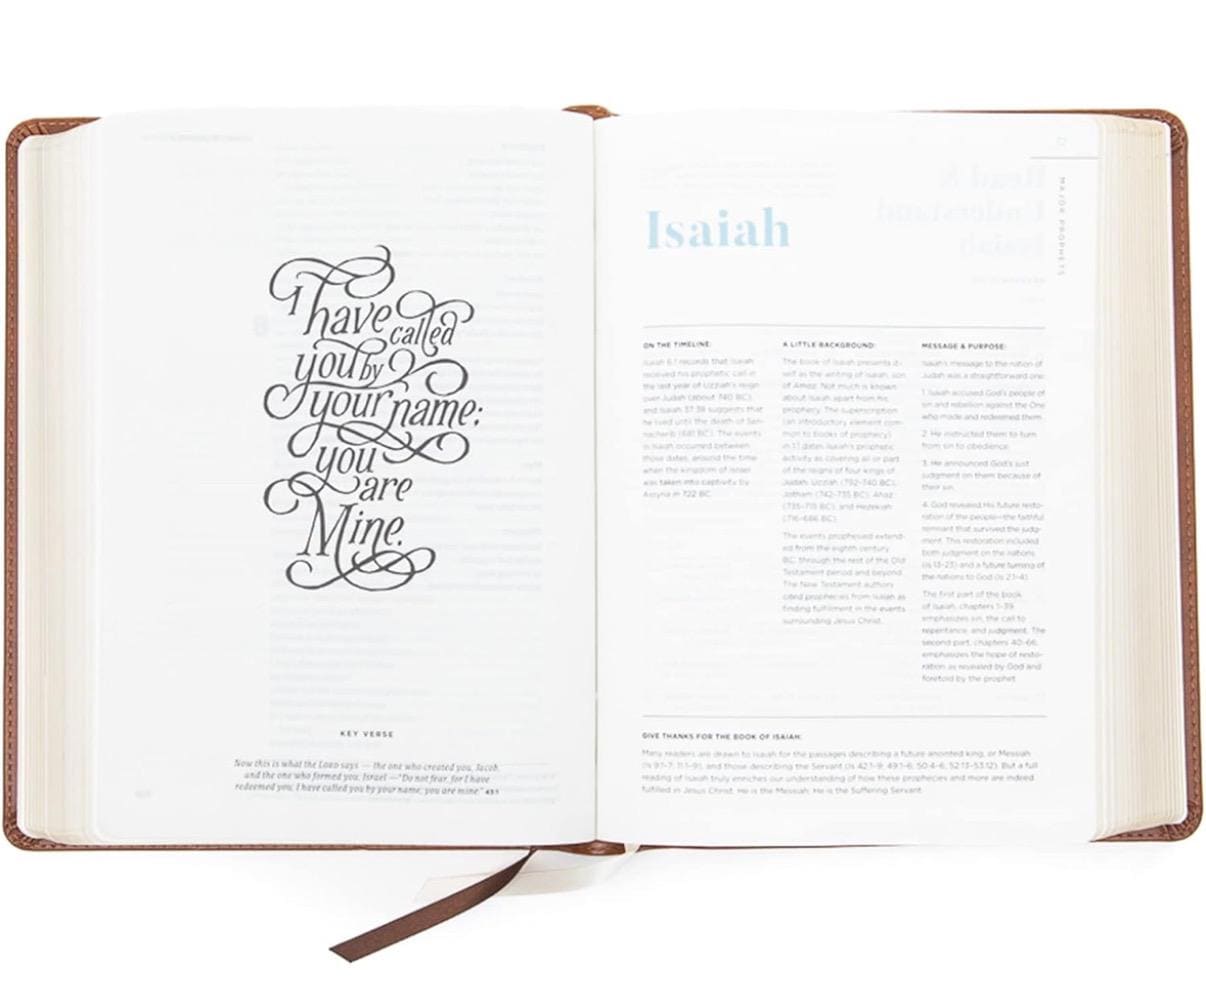 I have called
you by
your name:
you
are
Mine.
KEY VERSE
Now this is what the LORD says — the one who created you, Jacob,
and the one who formed you, Israel — "Do not fear, for I have
redeemed you; I have called you by your name; you are mine." 43:1
MAJOR PROPHETS
Isaiah
ON THE TIMELINE:
Isaiah 6:1 records that Isaiah
received his prophetic call in
the last year of Uzziah's reign
over Judah (about 740 BC),
and Isaiah 37:38 suggests that
he lived until the death of Sen-
nacherib (681 BC). The events
in Isaiah occurred between
those dates, around the time
when the kingdom of Israel
was taken into captivity by
Assyria in 722 BC.
A LITTLE BACKGROUND:
The book of Isaiah presents it-
self as the writing of Isaiah, son
of Amoz. Not much is known
about Isaiah apart from his
prophecy. The superscription
(an introductory element com-
mon to books of prophecy)
in 1:1 dates Isaiah's prophetic
activity as covering all or part
of the reigns of four kings of
Judah: Uzziah (792–740 BC),
Jotham (742–735 BC), Ahaz
(735–715 BC), and Hezekiah
(716–686 BC).
The events prophesied extend-
ed from the eighth century
BC through the rest of the Old
Testament period and beyond.
The New Testament authors
cited prophecies from Isaiah as
finding fulfillment in the events
surrounding Jesus Christ.
MESSAGE & PURPOSE:
Isaiah's message to the nation of
Judah was a straightforward one:
1. Isaiah accused God's people of
sin and rebellion against the One
who made and redeemed them.
2. He instructed them to turn
from sin to obedience.
3. He announced God's just
judgment on them because of
their sin.
4. God revealed His future resto-
ration of the people—the faithful
remnant that survived the judg-
ment. This restoration included
both judgment on the nations
(Is 13–23) and a future turning of
the nations to God (Is 2:1–4).
The first part of the book
of Isaiah, chapters 1–39,
emphasizes sin, the call to
repentance, and judgment. The
second part, chapters 40–66,
emphasizes the hope of resto-
ration as revealed by God and
foretold by the prophet.
GIVE THANKS FOR THE BOOK OF ISAIAH:
Many readers are drawn to Isaiah for the passages describing a future anointed king, or Messiah
(Is 9:1–7; 11:1–9), and those describing the Servant (Is 42:1–9; 49:1–6; 50:4–6; 52:13–53:12). But a full
reading of Isaiah truly enriches our understanding of how these prophecies and more are indeed
fulfilled in Jesus Christ. He is the Messiah; He is the Suffering Servant.